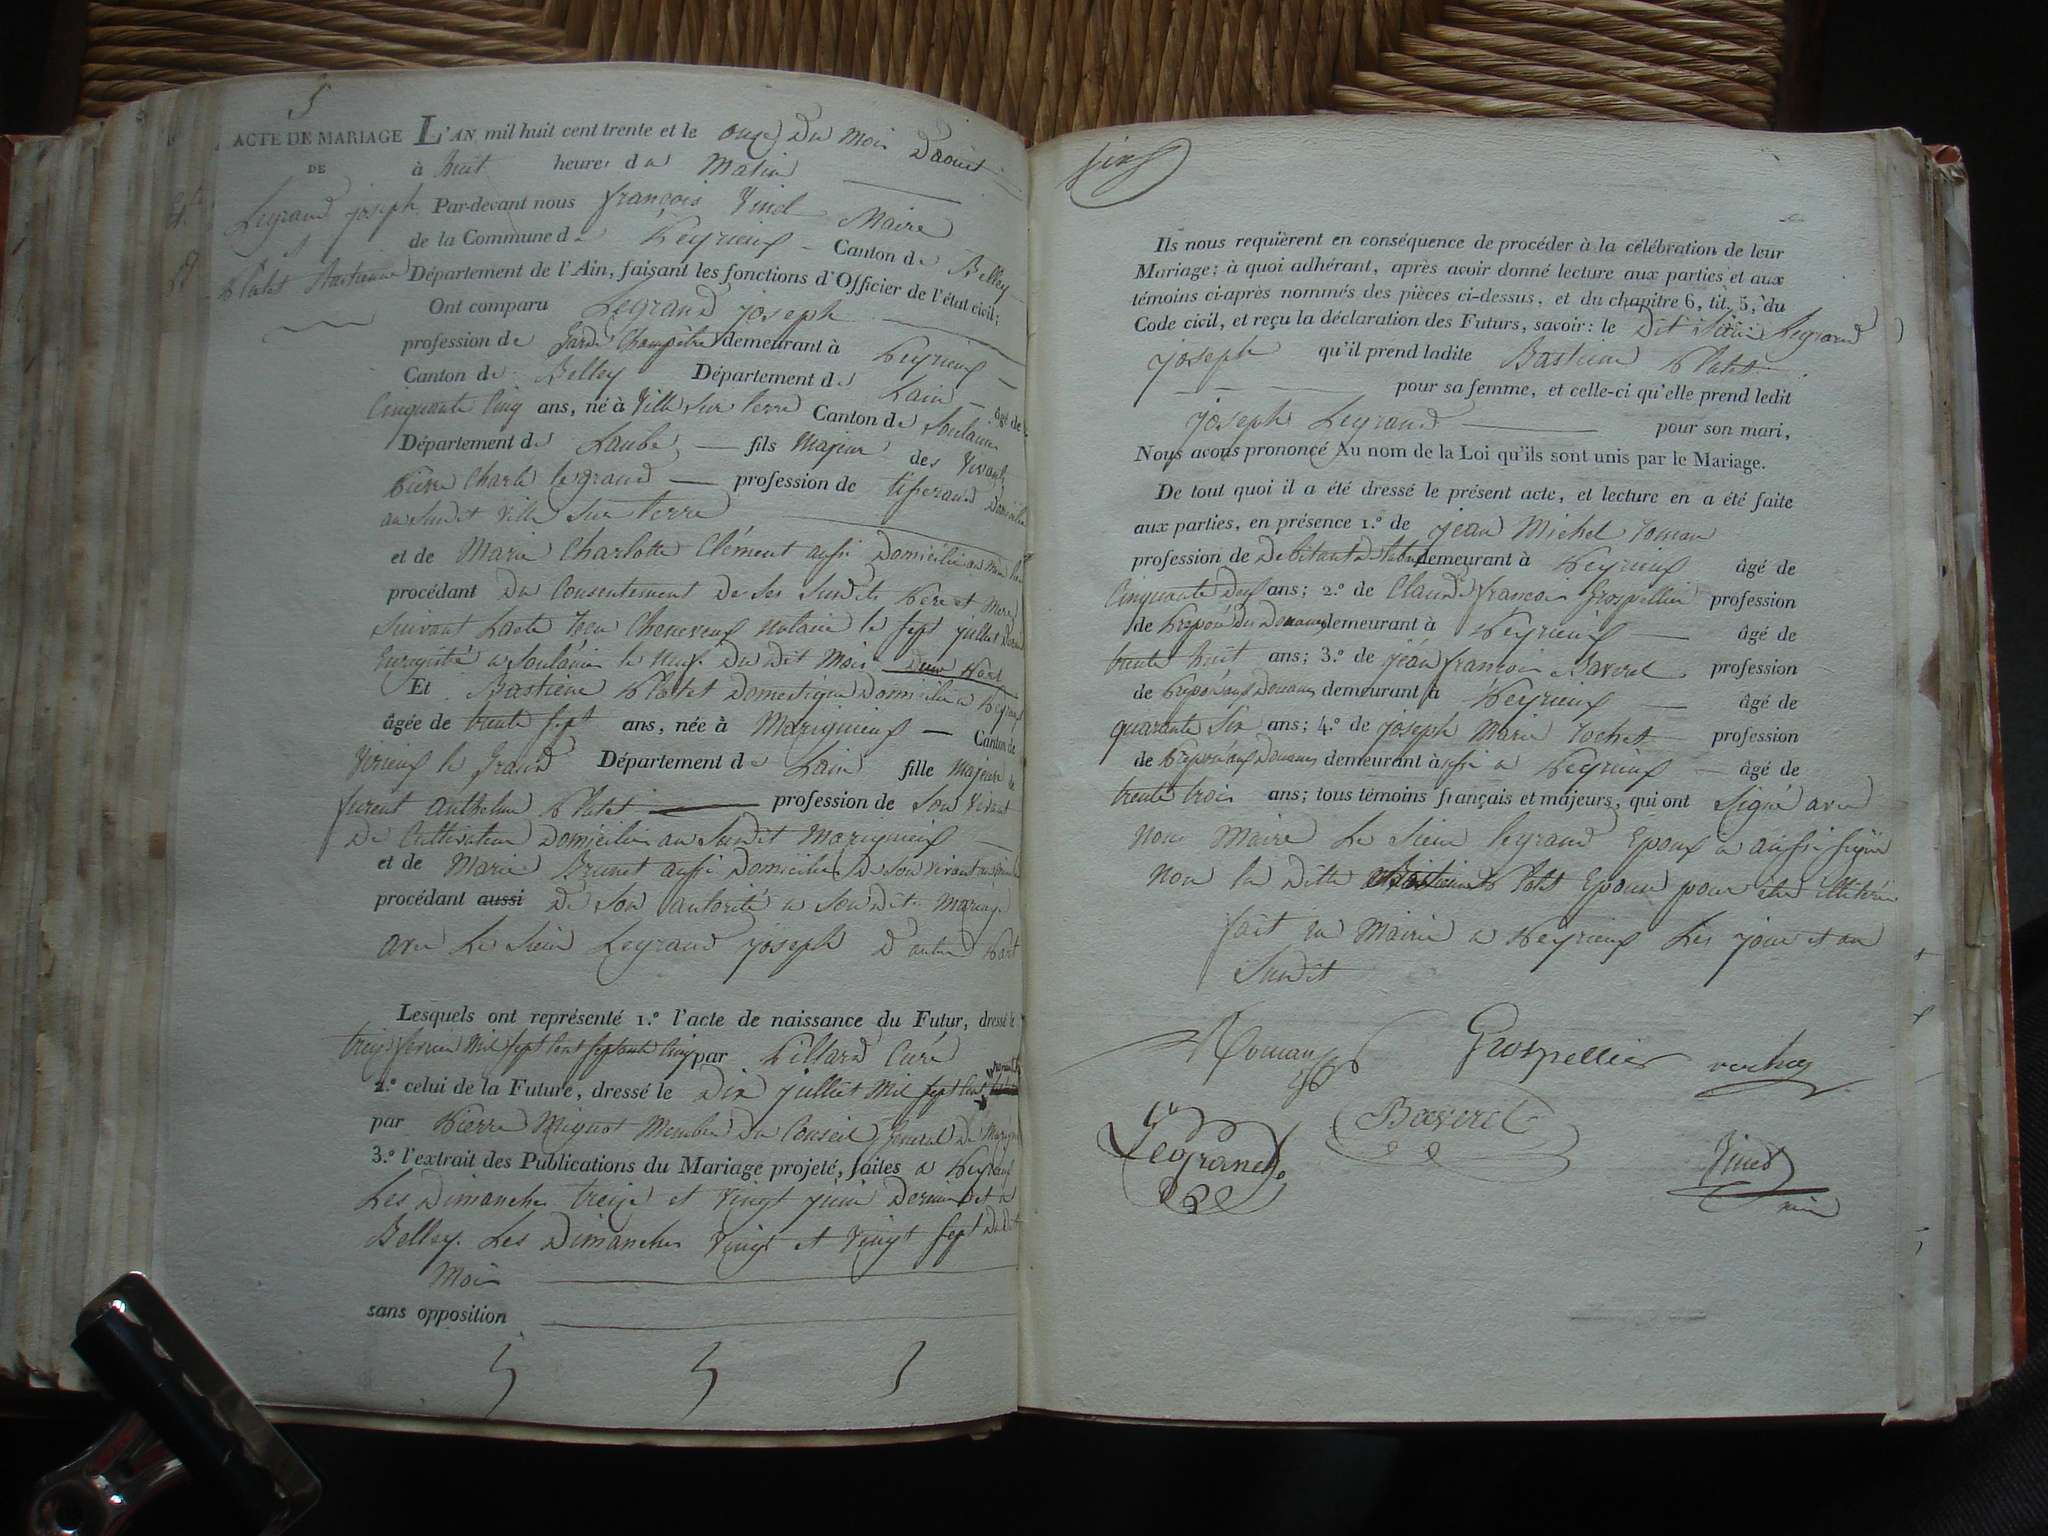 5
ACTE DE MARIAGE
DE
Legrand joseph
&
Platet Bastienne
L'AN mil huit cent trente et le onze du mois d'aout
à huit heures du matin
Par-devant nous françois Vinel Maire
de la Commune de Peyrieux Canton de Belley
Département de l'Ain, faisant les fonctions d'Officier de l'état civil;
Ont comparu Legrand joseph
profession de garde Champêtre demeurant à Peyrieux
Canton de Belley Département de Lain âgé de
Cinquante Cinq ans, né à Ville sur terre Canton de Soulaine
Département de Laube fils majeur des vivants
Pierre Charle legrand profession de tisserand domicilié
au susdit Ville sur terre
et de Marie Charlotte Clément aussi domiciliée au même lieu
procédant du Consentement de ses susdits Père et Mere
suivant Lacte reçu notaire le sept juillet dernier
Enregistré a Soulaine le neuf du dit mois d'une Part
Et Bastiene Platet domestique domiciliée a Peyrieux
âgée de trente sept ans, née à Marignieux Canton de
Virieux le grand Département de Lain fille majeure de
furent anthelme Platet profession de son vivant
de Cultivateur domicilié au susdit Marignieux
et de Marie Brunet aussi domiciliée de son vivant au même lieu
procédant aussi de son autorité a son dit mariage
avec Le sieur Legrand joseph d'autre Part
Lesquels ont représenté 1.º l'acte de naissance du Futur, dressé le
treize fevrier mil sept cent septante cinq par Curé
2.º celui de la Future, dressé le dix juillet mil sept cent
par Pierre Mignot Membre du Conseil general de Marignieux
3.º l'extrait des Publications du Mariage projeté, faites a Peyrieux
Les Dimanches treize et vingt juin dernier et a
Belley. Les Dimanches vingt et vingt sept du dit
Mois
sans opposition
six
Ils nous requièrent en conséquence de procéder à la célébration de leur
Mariage; à quoi adhérant, après avoir donné lecture aux parties et aux
témoins ci-après nommés des pièces ci-dessus, et du chapitre 6, tit. 5, du
Code civil, et reçu la déclaration des Futurs, savoir: le dit sieur Legrand
joseph qu'il prend ladite Bastiene Platet
pour sa femme, et celle-ci qu'elle prend ledit
joseph Legrand pour son mari,
Nous avons prononcé Au nom de la Loi qu'ils sont unis par le Mariage.
De tout quoi il a été dressé le présent acte, et lecture en a été faite
aux parties, en présence 1.º de jean Michel roman
profession de debitant de tabac demeurant à Peyrieux âgé de
Cinquante deux ans; 2.º de Claude françois grospellier profession
de Préposé des Douanes demeurant à Peyrieux âgé de
trente huit ans; 3.º de jean françois Baverel profession
de Préposé aux Douanes demeurant à Peyrieux âgé de
quarante six ans; 4.º de joseph Marie profession
de Préposé aux Douanes demeurant à aussi a Peyrieux âgé de
trente trois ans; tous témoins français et majeurs, qui ont signé avec
nous Maire Le sieur legrand Epoux a aussi signé
non la ditte Bastiene Platet Epouse pour être illitérée
fait en Mairie a Peyrieux Les jour et an
susdit
Roman
Grospellier
Legrand
Baverel
Vinel